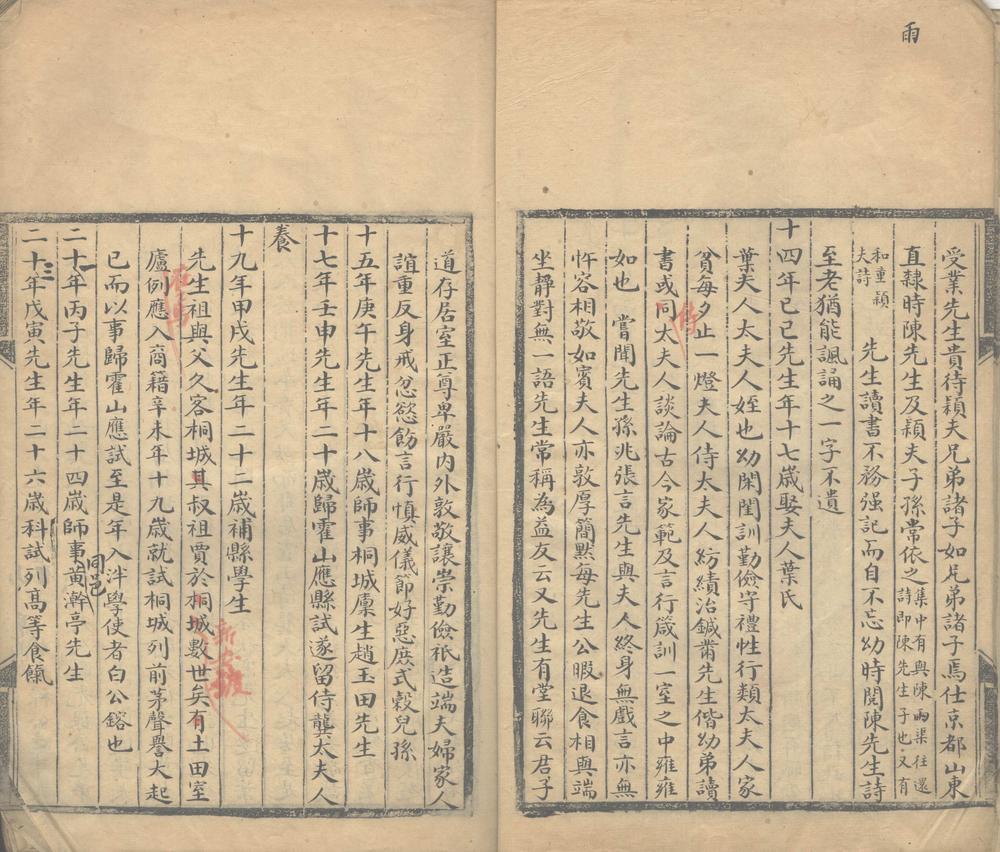 雨
受業先生貴待穎夫兄弟諸子如兄弟諸子焉仕京都山東
直隸時陳先生及穎夫子孫常依之集中有與陳雨渠往還詩即陳先生子也又有
和董穎夫詩 先生讀書不務强記而自不忘幼時閱陳先生詩
至老猶能諷誦之一字不遺
十四年己巳先生年十七歲娶夫人葉氏
葉夫人太夫人姪也幼閑閨訓勤儉守禮性行類太夫人家
貧每夕止一燈夫人侍太夫人紡績治鍼黹先生偕幼弟讀
書或同太夫人談論古今家範及言行箴訓一室之中雍雍
侍
如也 嘗聞先生孫兆張言先生與夫人終身無戲言亦無
忤容相敬如賓夫人亦敦厚簡默每先生公暇退食相與端
坐靜對無一語先生常稱為益友云又先生有堂聯云君子
道存居室正尊卑嚴內外敦敬讓崇勤儉祇造端夫婦家人
誼重反身戒忿慾飭言行慎威儀節好惡庶式穀兒孫
十五年庚午先生年十八歲師事桐城廩生趙玉田先生
十七年壬申先生年二十歲歸霍山應縣試遂留侍龔太夫人
養
十九年甲戌先生年二十二歲補縣學生
先生祖與父久客桐城其叔祖賈於桐城數世矣有土田室
廬例應入商籍辛未年十九歲就試桐城列前茅聲譽大起
已而以事歸霍山應試至是年入泮學使者白公鎔也
二十一年丙子先生年二十四歲師事同邑黃澣亭先生
二十三年戊寅先生年二十六歲科試列高等食餼